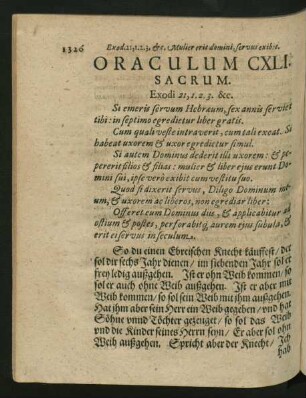 1326 Exod. 21,1.2.3. &c. Mulier erit domini, servus exibit.
ORACULUM CXLI.
SACRUM.
Exodi 21,1.2.3. &c.
Si emeris servum Hebræum, sex annis serviet
tibi: in septimo egredietur liber gratis.
Cum quali veste intraverit, cum tali exeat. Si
habeat uxorem & uxor egredietur simul.
Si autem Dominus dederit illi uxorem: & pe-
pererit filios & filias: mulier & liber ejus erunt Do-
mini sui, ipse verò exibit cum vestitu suo.
Quod si dixerit servus, Diligo Dominum me-
um, & uxorem ac liberos, non egrediar liber:
Offeret eum Dominus diis, & applicabitur ad
ostium & postes, perforabitq; aurem ejus subula, &
erit ei servus in seculum.
So du einen Ebreischen Knecht käuffest/ der
sol dir sechs Jahr dienen/ im siebenden Jahr sol er
frey ledig außgehen. Ist er ohn Weib kommen/ so
sol er auch ohne Weib außgehen. Ist er aber mit
Weib kommen/ so sol sein Weib mit jhm außgehen.
Hat jhm aber sein Herr ein Weib gegeben/ vnd hat
Söhne vnnd Töchter gezeuget/ so sol das Weib
vnd die Kinder seines Herrn seyn/ Er aber sol ohn
Weib außgehen. Spricht aber der Knecht/ Ich
hab